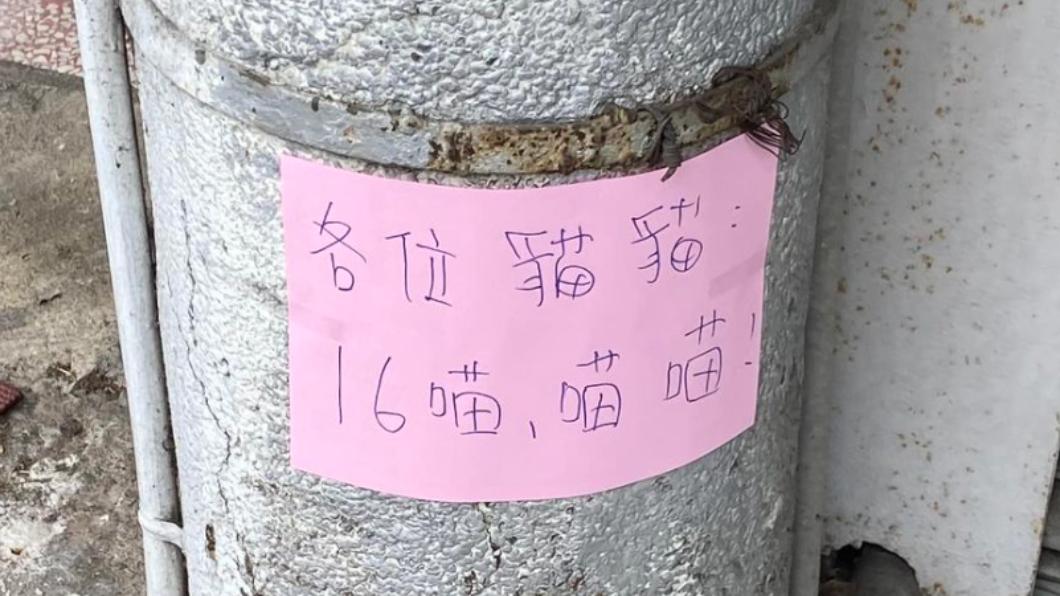 各位貓貓：
16喵、喵喵！